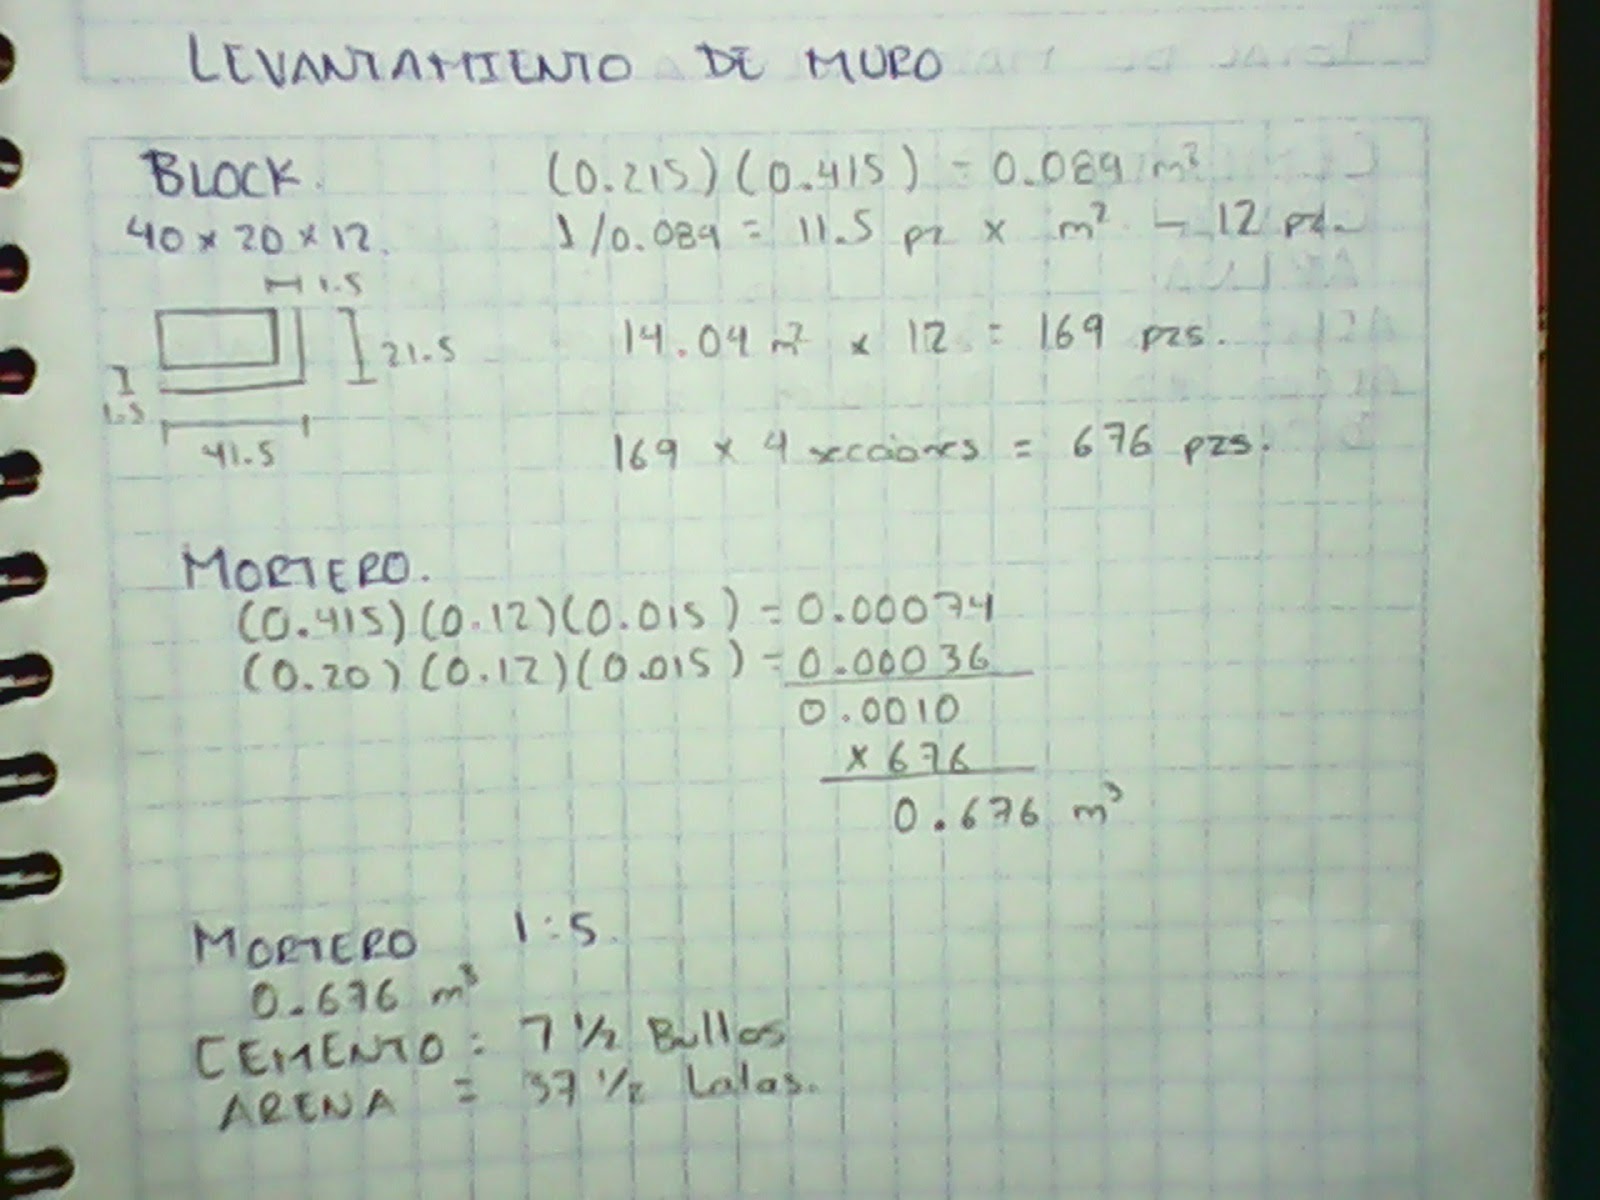 LEVANTAMIENTO DE MURO
BLOCK.
40 x 20 x 12.
1.5
21.5
1.5
41.5
(0.215)(0.415) = 0.089 m²
1/0.089 = 11.5 pz x m² - 12 pz.
14.04 m² x 12 = 169 pzs.
169 x 4 secciones = 676 pzs.
MORTERO.
(0.415)(0.12)(0.015) = 0.00074
(0.20)(0.12)(0.015) = 0.00036
0.0010
x 676
0.676 m³
MORTERO 1:5.
0.676 m³
CEMENTO = 7 1/2 Bultos
ARENA = 37 1/2 Latas.